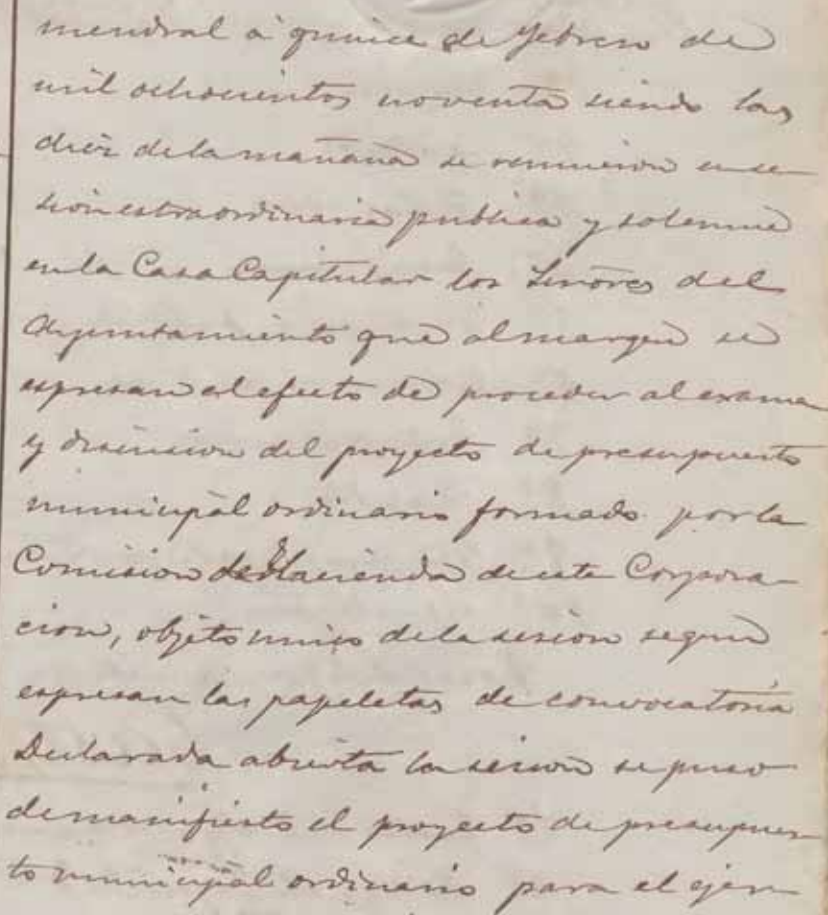 mendral à quince de Febrero de
mil ochocientos noventa siendo las
diez de la mañana se reunieron en se-
sión estraordinaria publica y solemne
en la Casa Capitular los Señores del
Ayuntamiento que al margen se
espresan al efecto de proceder al examen
y discusion del proyecto de presupuesto
municipal ordinario formado por la
Comision de Hacienda de esta Corpora-
cion, objeto unico de la sesion segun
espresan las papeletas de convocatoria
Declarada abierta la sesion se puso
de manifiesto el proyecto de presupues-
to municipal ordinario para el ejer-